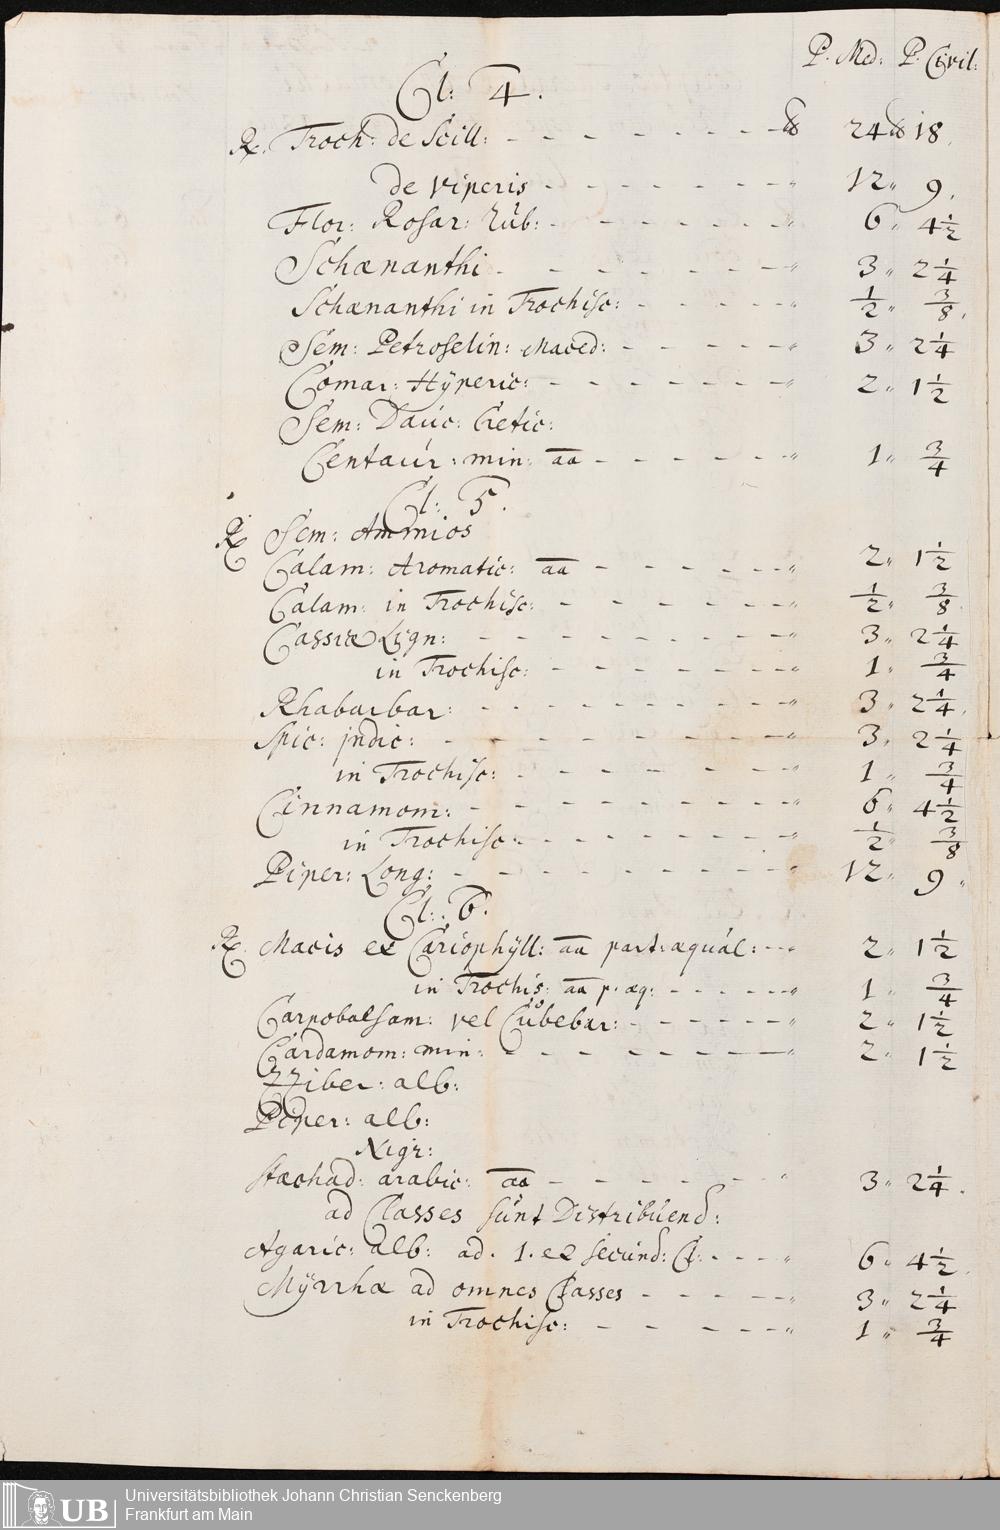 P. Med: P. Civil:
Cl: 4.
Rx. Troch: de Scill: - - - - - - - ℔ 24 ℔ 18.
de viperis - - - - - - - " 12 " 9.
Flor: Rosar: Rúb: - - - - - - - " 6 " 4 1/2
Schænanthi - - - - - - - " 3 " 2 1/4
Schænanthi in Trochisc: - - - - - " 1/2 " 3/8.
Sem: Petroselin: Maced: - - - - - " 3 " 2 1/4
Comar: Hÿperic: - - - - - - - " 2 " 1 1/2
Sem: Dauc: Cretic:
Centaúr: min: aa - - - - - - " 1 " 3/4
Cl: 5.
Rx Sem: Ammios
Calam: Aromatic: aa - - - - - - " 2 " 1 1/2
Calam: in Trochisc: - - - - - - - " 1/2 " 3/8.
Cassiæ Lign: - - - - - - - - - " 3 " 2 1/4
in Trochisc: - - - - - - - " 1 " 3/4
Rhabarbar: - - - - - - - - - " 3 " 2 1/4.
Spic: jndic: - - - - - - - - - - " 3 " 2 1/4
in Trochisc: - - - - - - - - " 1 " 3/4
Cinnamom: - - - - - - - - - " 6 " 4 1/2
in Trochisc: - - - - - - - " 1/2 " 3/8
Piper: Long: - - - - - - - - - " 12 " 9 "
Cl: 6.
Rx. Macis et Cariophÿll: aa part: æquál: - - " 2 " 1 1/2
in Trochis: aa p: æq: - - - - - " 1 " 3/4
Carpobalsam: vel Cúbebar: - - - - - - " 2 " 1 1/2
Cardamom: min: - - - - - - - - " 2 " 1 1/2
Zziber: alb:
Piper: alb:
Nigr:
Stæchad: arabic: aa - - - - - - " 3 " 2 1/4.
ad Classes súnt Distribúend:
Agaric: alb: ad. 1. et secúnd: Cl: - - - " 6 " 4 1/2
Mÿrrhæ ad omnes Classes - - - - - " 3 " 2 1/4
in Trochisc: - - - - - - " 1 " 3/4
UB
Universitätsbibliothek Johann Christian Senckenberg
Frankfurt am Main